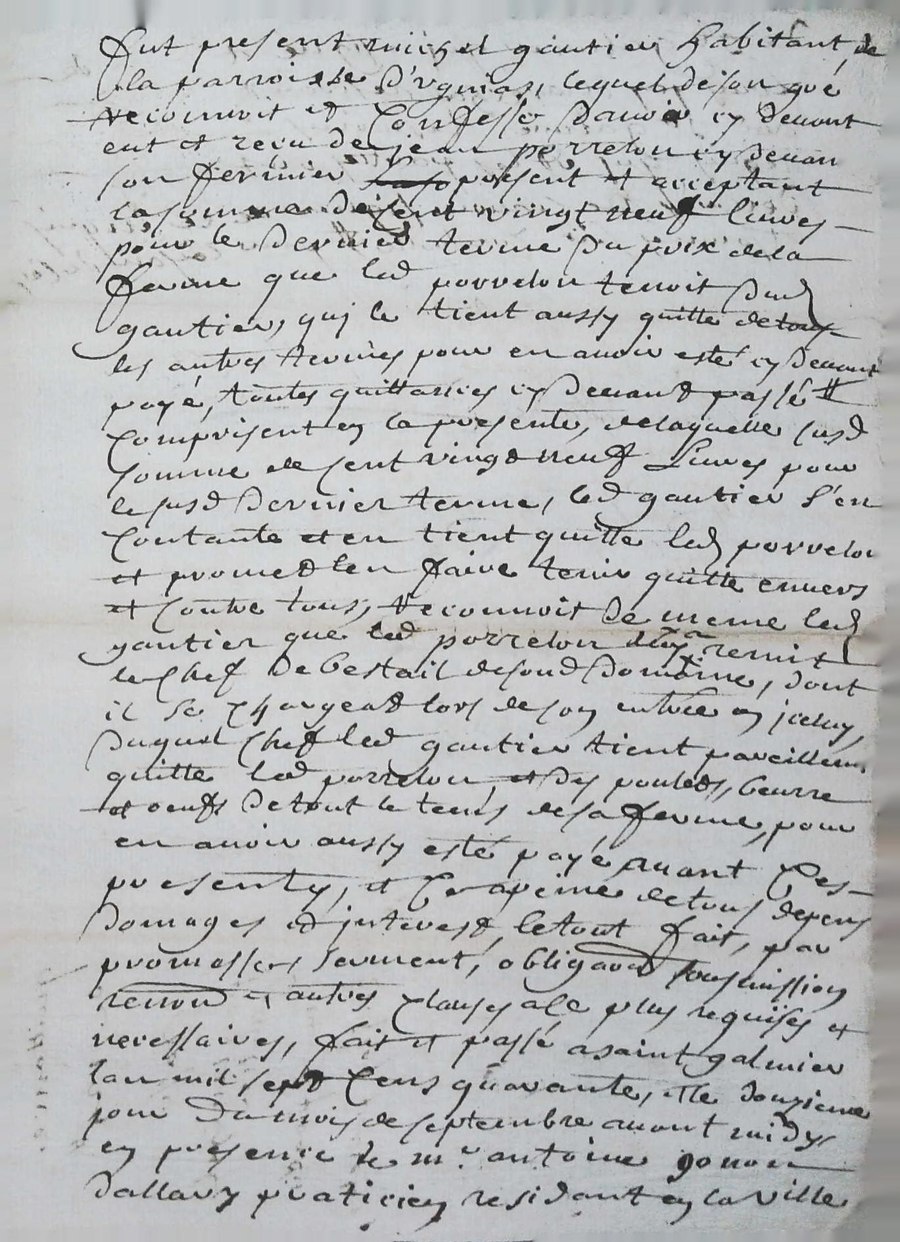 fut present michel gautier habitant de
la parroisse d'yguias, lequel de son gré
reconnoit et Confesse d'avoir cy devant
eut et reçu de jean porrelon cy devan
son fermier present et acceptant
la somme de Cent vingt neuf livres
pour le dernier terme du prix de la
ferme que led porrelon tenoit dud
gautier, quj le tient aussy quitte de tous
les autres termes pour en avoir esté cy devant
payé, toutes quittances cy devant passé
Comprisent en la presente, de laquelle susd
somme de Cent vingt neuf Livres pour
le susd dernier terme, led gautier s'en
Contante et en tient quitte led porrelon
et promet l'en faire tenir quitte envers
et Contre tous, reconnoit de meme led
gautier que led porrelon remit
le Chef de bestail de soud Domaine, dont
il se Chargeat lors de son entrée en jceluy,
duquel Chef led gautier tient pareillem
quitte led porrelon, et des poulets, beurre
et oeufs de tout le tems de sa ferme, pour
en avoir aussy esté payé avant Ces
presentes, et Ce a peine de tous depens
domages et jnterest, le tout fait, par
promesses serment, obligaon soumission
renon et autres Clauses a ce plus requises et
necessaires, fait et passé a saint galmier
lan mil sept Cens quarante, et le douzieme
jour du mois de septembre avant midy
en presence de mr antoine gonon
dallary praticien residant en la ville